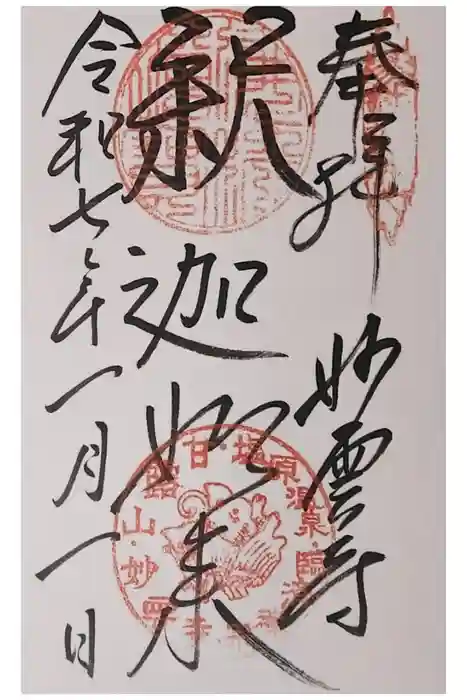 奉拝
妙雲寺
釈迦如来
令和七年一月一日
甘露山・妙雲寺
塩原温泉・臨済